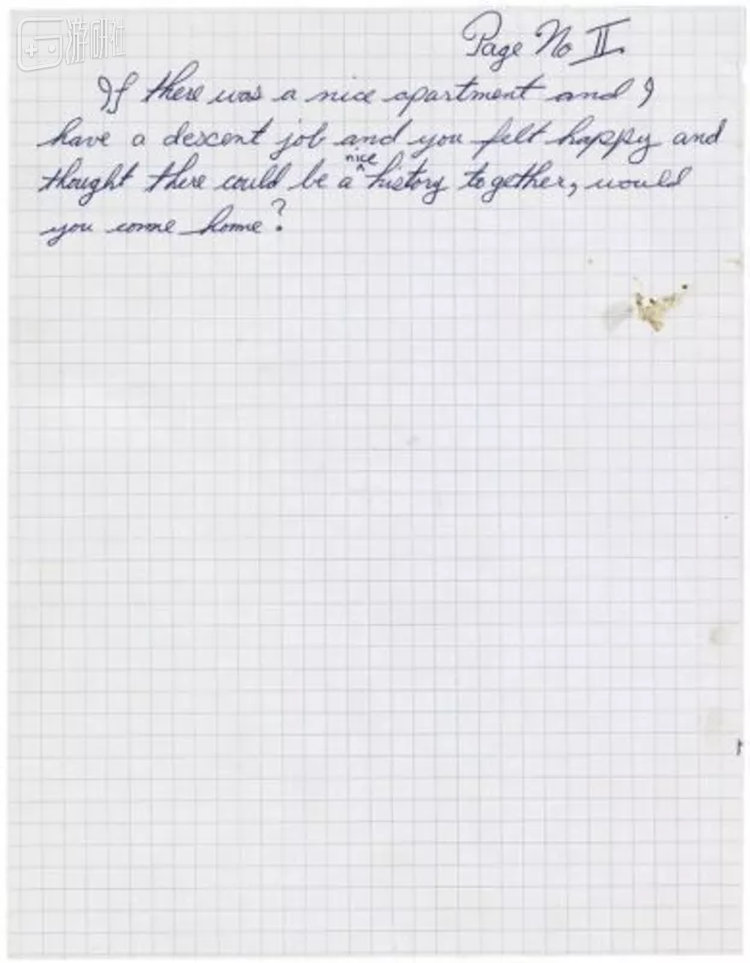 游研社
Page No II
If there was a nice apartment and I
have a descent job and you felt happy and
nice
thought there could be a ^ history together, would
you come home?